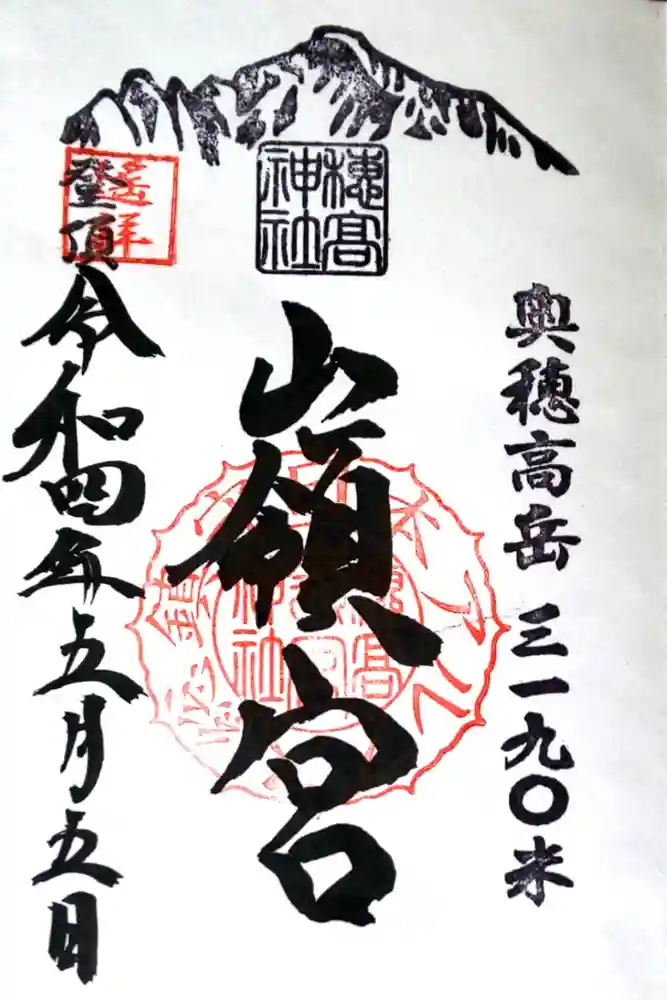 奥穂高岳 三一九〇米
穂高神社
嶺宮
登頂
遥拝
令和四年五月五日